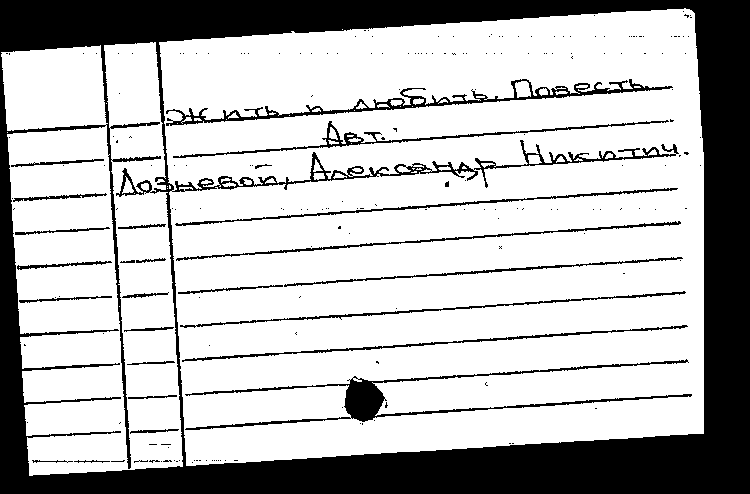 Жить и любить. Повесть
Авт.:
Лозневой, Александр Никитич.